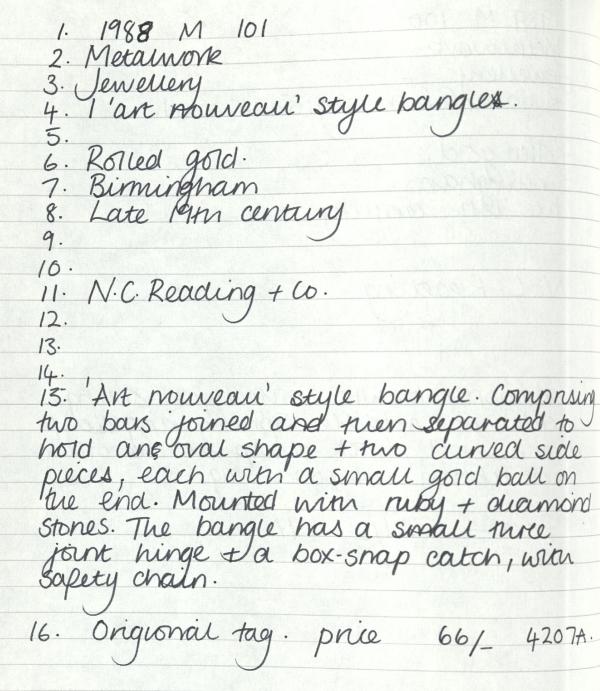 1. 1988 M 101
2. Metalwork
3. Jewellery
4. 1 'art nouveau' style bangle.
5.
6. Rolled gold.
7. Birmingham
8. Late 19th century
9.
10.
11. N.C. Reading + Co.
12.
13.
14.
15. 'Art nouveau' style bangle. Comprising
two bars joined and then separated to
hold an oval shape + two curved side
pieces, each with a small gold ball on
the end. Mounted with ruby + diamond
stones. The bangle has a small three
joint hinge + a box-snap catch, with
safety chain.
16. Origional tag. price 66/- 4207A.